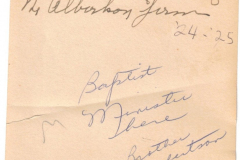 The Alberson Farm
'24-'25
Baptist
Minister
There
Brother